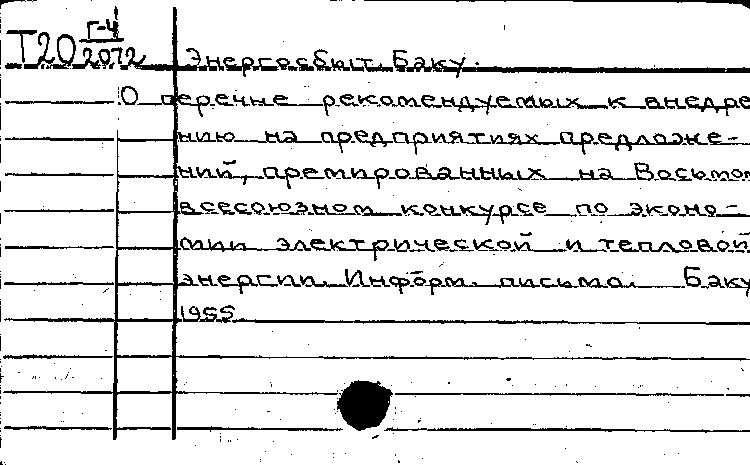 Т20 Г-4/2072 Энергосбыт. Баку.
О перечне рекомендуемых к внедре
нию на предприятиях предложе-
ний, премированных на Восьмом
всесоюзном конкурсе по эконо-
мии электрической и тепловой
энергии. Информ. письма. Баку
1955.